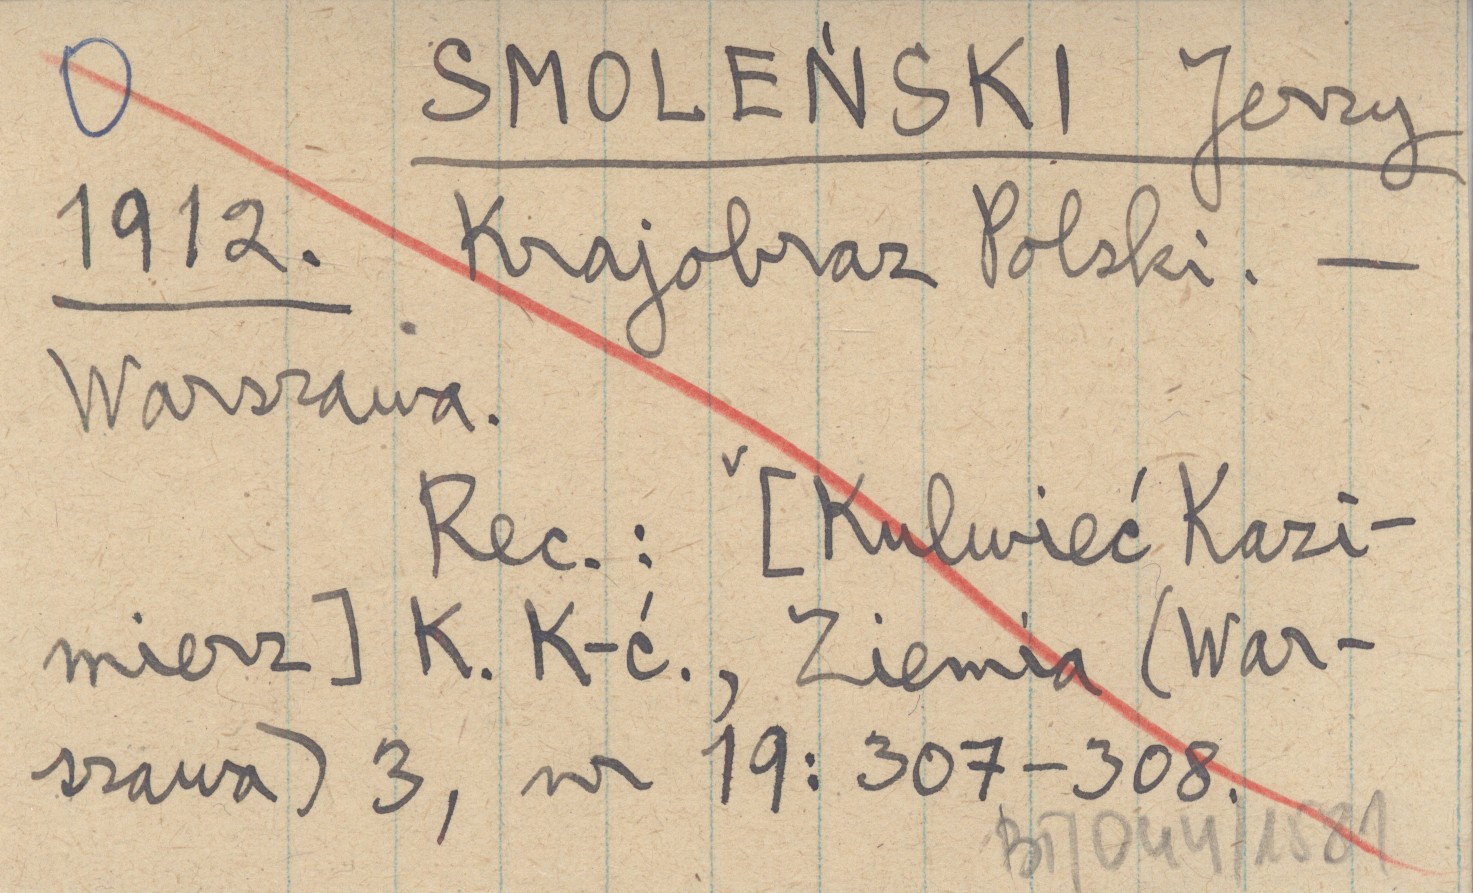 O SMOLEŃSKI Jerzy
1912. Krajobraz Polski. —
Warszawa.
Rec.: ˇ[Kulwieć Kazi-
mierz] K. K-ć., Ziemia (War-
szawa) 3, nr 19: 307-308.